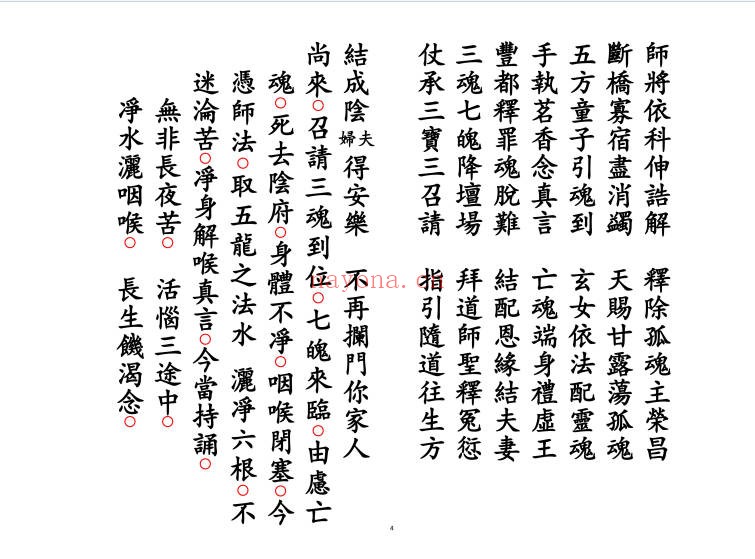 師將依科伸誥解 釋除孤魂主榮昌
斷橋寡宿盡消蠲 天賜甘露蕩孤魂
五方童子引魂到 玄女依法配靈魂
手執茗香念真言 亡魂端身禮虛王
豐都釋罪魂脫難 結配恩緣結夫妻
三魂七魄降壇場 拜道師聖釋冤愆
仗承三寶三召請 指引隨道往生方
結成陰夫婦得安樂 不再攔門你家人
尚來○召請三魂到位○七魄來臨○由慮亡
魂○死去陰府○身體不凈○咽喉閉塞○今
憑師法○取五龍之法水 灑凈六根○不
迷淪苦○凈身解喉真言○今當持誦○
無非長夜苦○ 活惱三途中○
凈水灑咽喉○ 長生饑渴念○
nayona.cn
4